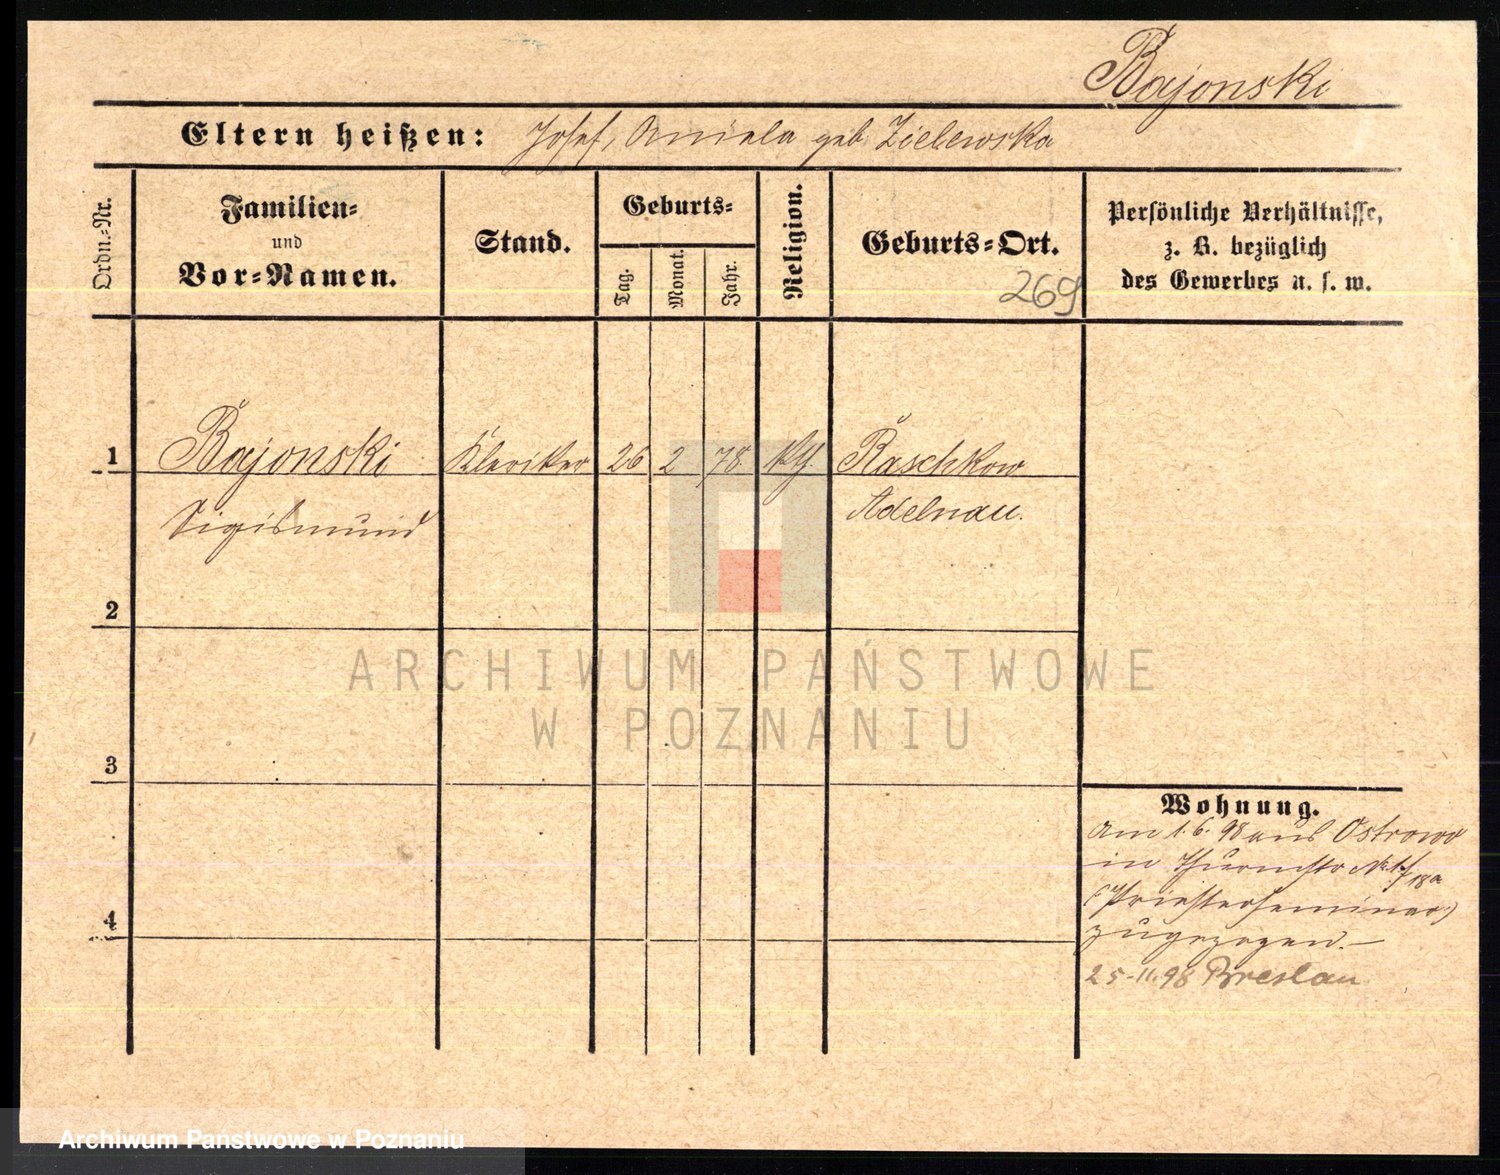 Bajonski
Eltern heißen: Josef, Aniela geb. Zielewska
Ordn.-Nr.
Familien-
und
Vor-Namen.
Stand.
Geburts-
Tag.
Monat.
Jahr.
Religion.
Geburts-Ort.
269
Persönliche Verhältnisse,
z. B. bezüglich
des Gewerbes u. s. w.
1 Bajonski Kleriker 26 2 78. Raschkow
Sigismund Adelnau.
2
3
4
Wohnung.
am 1. 6. 98 aus Ostrowo
in Thurmstr No
18a
(Priesterseminar)
zugezogen.—
25-11.98 Breslau
ARCHIWUM PAŃSTWOWE
W POZNANIU
Archiwum Państwowe w Poznaniu